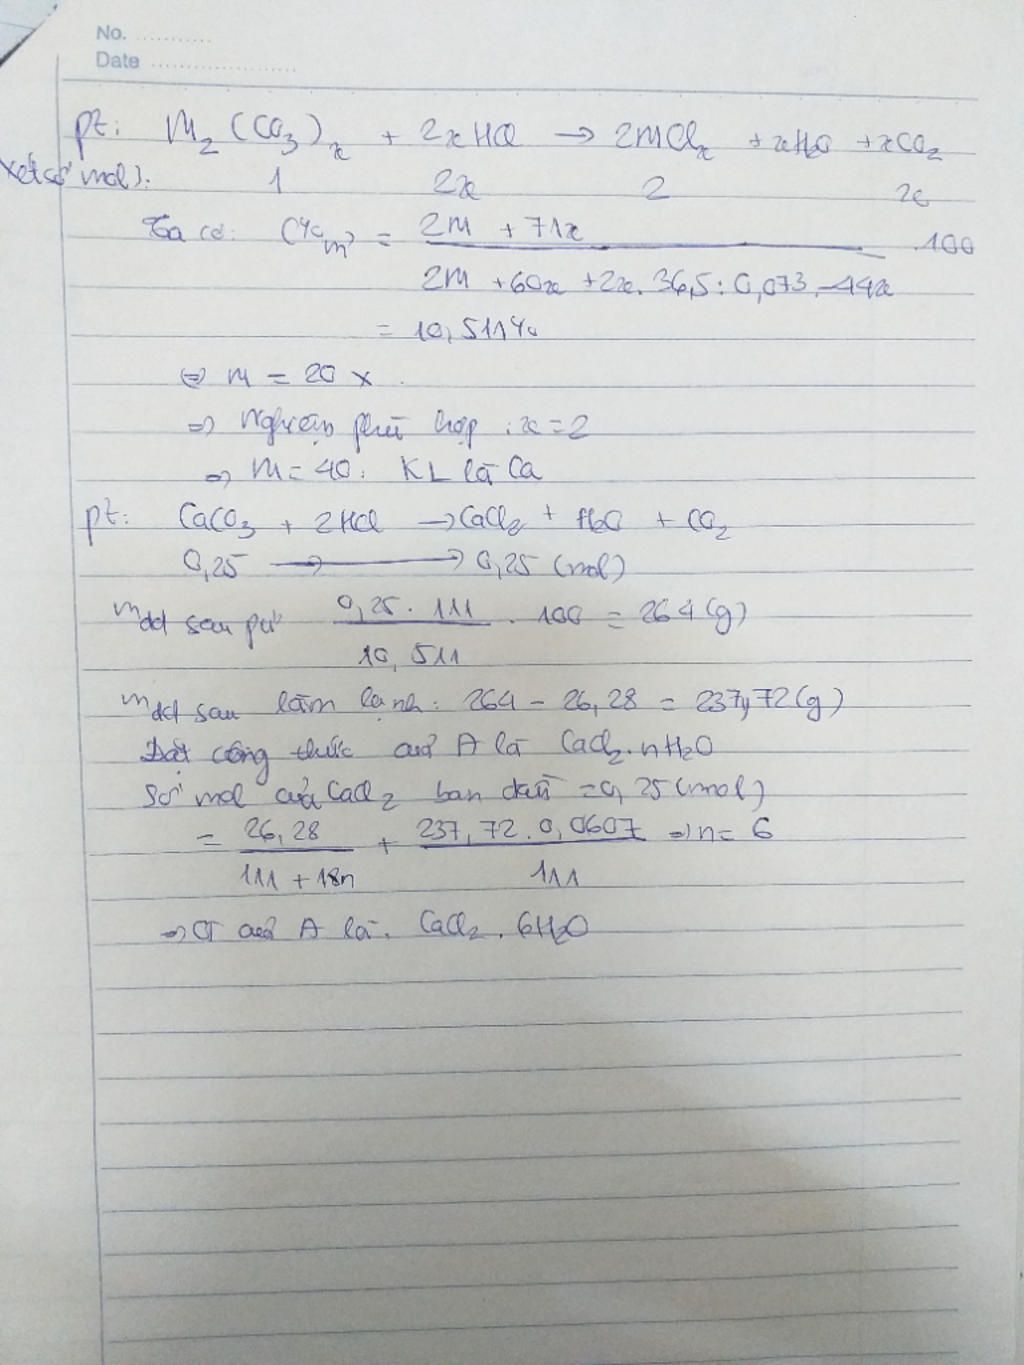 No. ...........
Date .....................
pt: M₂(CO₃)ₓ + 2xHCl → 2MClₓ + xH₂O + xCO₂
Xét (số mol): 1 2x 2 x
Ta có: C%m' = (2M + 71x) / (2M + 60x + 2x.36,5:0,073 - 44x) .100
= 10,511%
⇔ M = 20x.
⇒ Nghiệm phù hợp : x = 2
⇒ M = 40: KL là Ca
pt: CaCO₃ + 2HCl → CaCl₂ + H₂O + CO₂
0,25 → 0,25 (mol)
mdd sau pư (0,25 . 111) / 10,511 . 100 = 264 (g)
mdd sau làm lạnh: 264 - 26,28 = 237,72 (g)
Đặt công thức của A là CaCl₂.nH₂O
Số mol của CaCl₂ ban đầu = 0,25 (mol)
= 26,28 / (111 + 18n) + (237,72 . 0,0607) / 111 ⇒ n = 6
⇒ CT của A là. CaCl₂ . 6H₂O